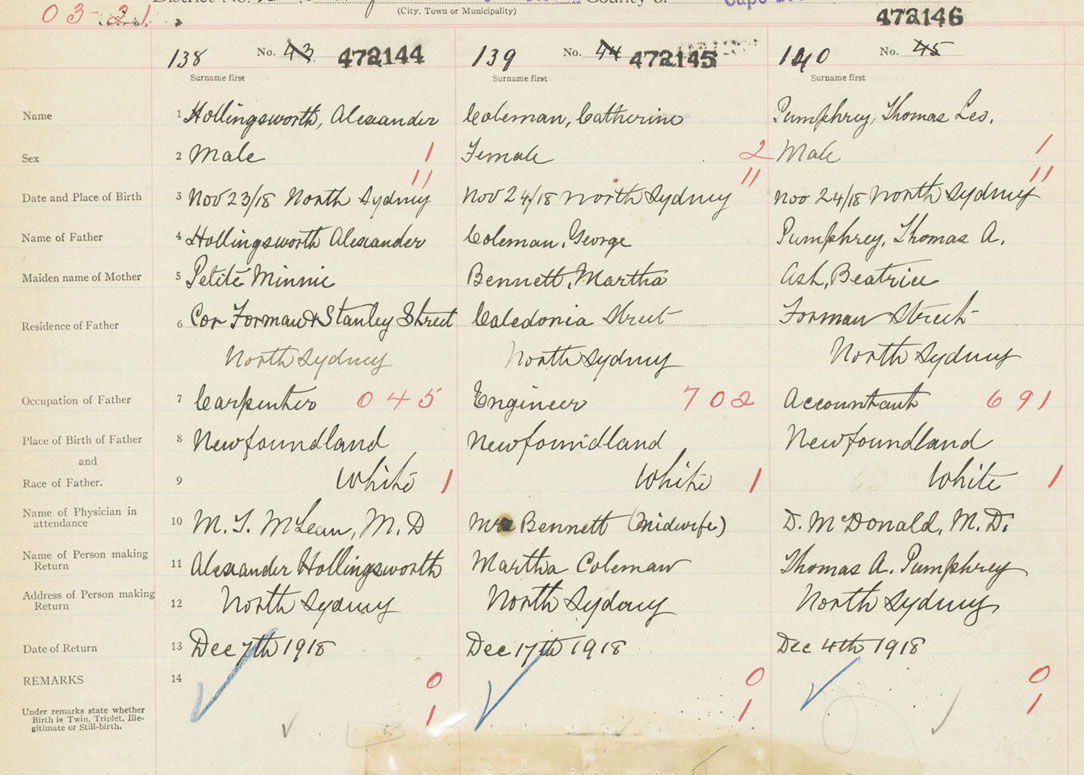 District No.
County of
(City, Town or Municipality)
03-21
472146
138 No. 43 472144
139 No. 44 472145
140 No. 45
Surname first Surname first Surname first
Name 1 Hollingsworth, Alexander Coleman, Catherine Pumphrey, Thomas Les.
Sex 2 Male 1 Female 2 Male 1
11 11 11
Date and Place of Birth 3 Nov 23/18 North Sydney Nov 24/18 North Sydney Nov 24/18 North Sydney
Name of Father 4 Hollingsworth Alexander Coleman, George Pumphrey, Thomas A.
Maiden name of Mother 5 Petite Minnie Bennett, Martha Ash, Beatrice
Residence of Father 6 Cor Forman & Stanley Street Caledonia Street Forman Street
North Sydney North Sydney North Sydney
Occupation of Father 7 Carpenter 045 Engineer 702 Accountant 691
Place of Birth of Father 8 Newfoundland Newfoundland Newfoundland
and
Race of Father. 9 White 1 White 1 White 1
Name of Physician in
attendance 10 M. T. McLean, M.D Mrs Bennett (Midwife) D. McDonald, M.D.
Name of Person making
Return 11 Alexander Hollingsworth Martha Coleman Thomas A. Pumphrey
Address of Person making
Return 12 North Sydney North Sydney North Sydney
Date of Return 13 Dec 7th 1918 Dec 17th 1918 Dec 4th 1918
REMARKS 14 0 0 0
Under remarks state whether
Birth is Twin, Triplet, Ille-
gitimate or Still-birth. 1 1 1